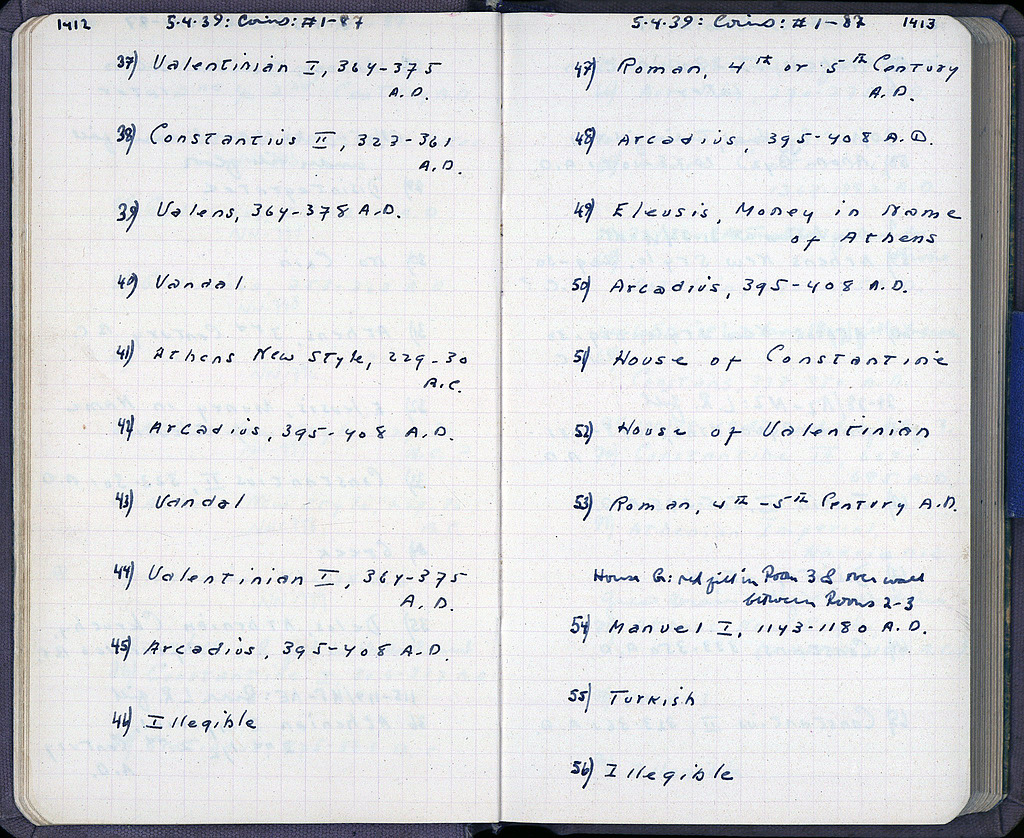 1412 5.4.39: Coins: #1-87
37) Valentinian I, 364-375
A.D.
38) Constantius II, 323-361
A.D.
39) Valens, 364-378 A.D.
40) Vandal
41) Athens New Style, 229-30
A.C.
42) Arcadius, 395-408 A.D.
43) Vandal
44) Valentinian I, 364-375
A.D.
45) Arcadius, 395-408 A.D.
46) Illegible
5.4.39: Coins: #1-87 1413
47) Roman, 4th or 5th Century
A.D.
48) Arcadius, 395-408 A.D.
49) Eleusis, Money in Name
of Athens
50) Arcadius, 395-408 A.D.
51) House of Constantine
52) House of Valentinian
53) Roman, 4th-5th Century A.D.
House G: red fill in Room 3 & over wall
between Rooms 2-3
54) Manuel I, 1143-1180 A.D.
55) Turkish
56) Illegible